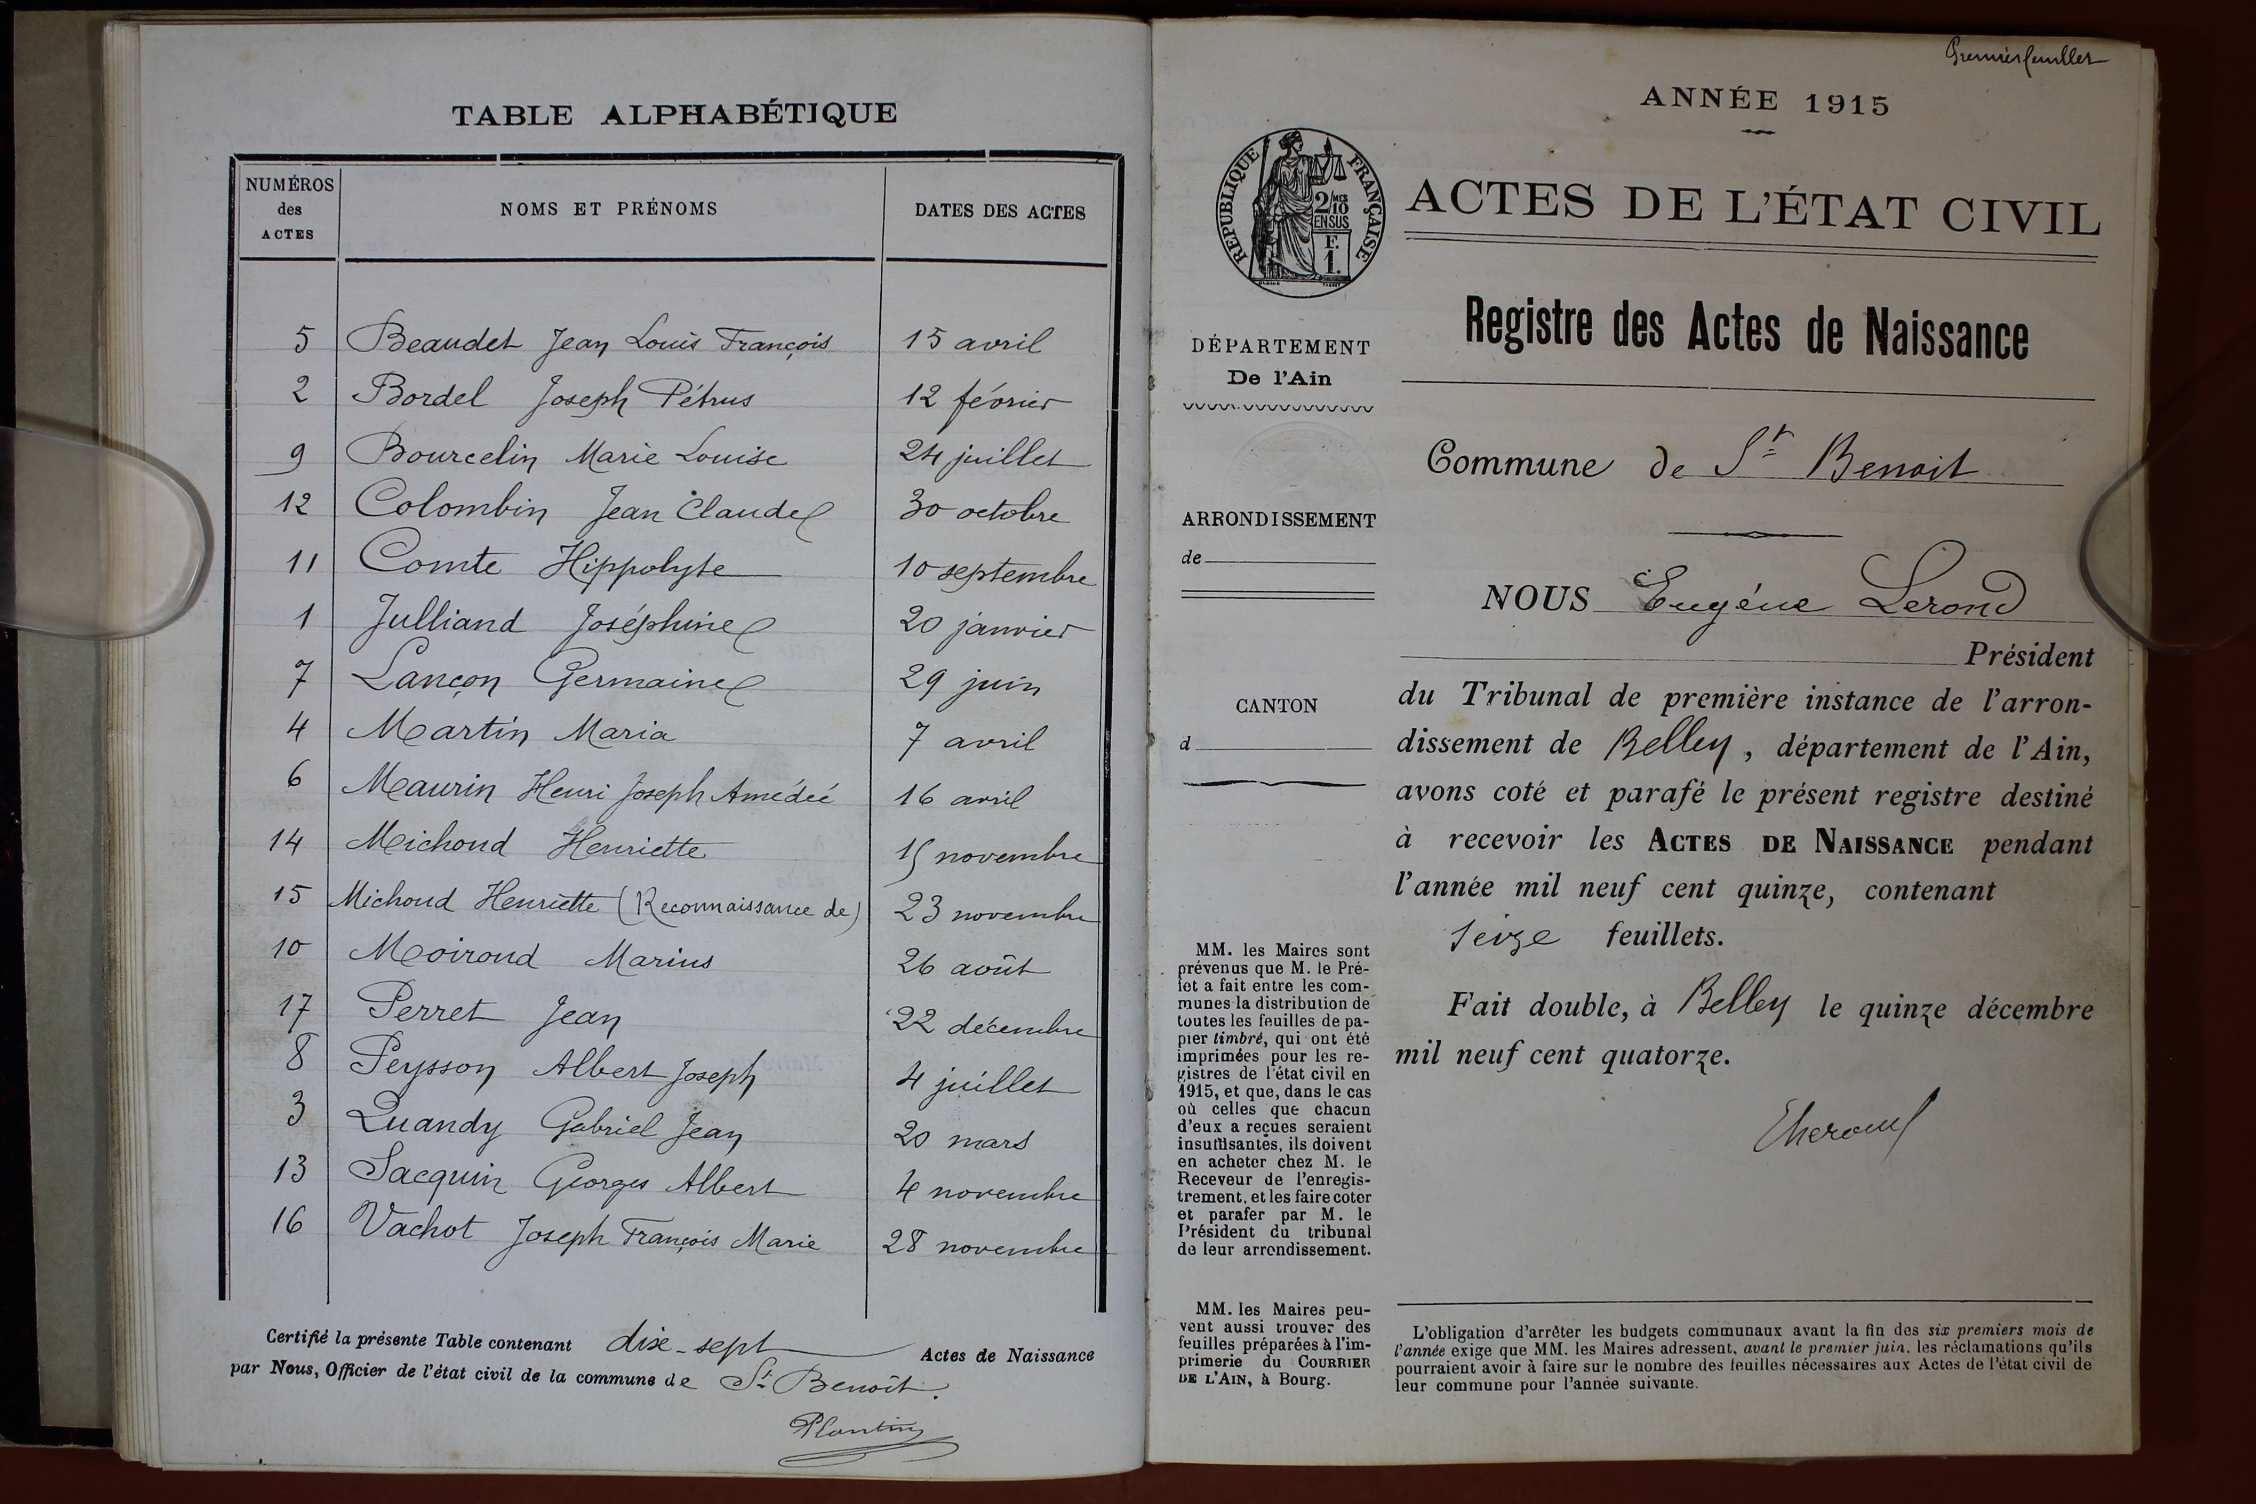 TABLE ALPHABÉTIQUE
NUMÉROS des ACTES NOMS ET PRÉNOMS DATES DES ACTES
5 Beaudet Jean Louis François 15 avril
2 Bordel Joseph Pétrus 12 février
9 Bourcelin Marie Louise 24 juillet
12 Colombin Jean Claude 30 octobre
11 Comte Hippolyte 10 septembre
1 Julliand Joséphine 20 janvier
7 Lançon Germaine 29 juin
4 Martin Maria 7 avril
6 Maurin Henri Joseph Amédée 16 avril
14 Michoud Henriette 15 novembre
15 Michoud Henriette (Reconnaissance de) 23 novembre
10 Moiroud Marius 26 août
17 Perret Jean 22 décembre
8 Peysson Albert Joseph 4 juillet
3 Quandy Gabriel Jean 20 mars
13 Sacquin Georges Albert 4 novembre
16 Vachot Joseph François Marie 28 novembre
Certifié la présente Table contenant dix-sept Actes de Naissance
par Nous, Officier de l'état civil de la commune de St Benoit.
Plantin
Premier feuillet
ANNÉE 1915
RÉPUBLIQUE FRANÇAISE
2/10 MES
EN SUS
F.
1.
ACTES DE L'ÉTAT CIVIL
Registre des Actes de Naissance
DÉPARTEMENT
De l'Ain
Commune de St Benoit
ARRONDISSEMENT
de
CANTON
d
NOUS Eugéne Lerond
Président
du Tribunal de première instance de l'arron-
dissement de Belley, département de l'Ain,
avons coté et parafé le présent registre destiné
à recevoir les ACTES DE NAISSANCE pendant
l'année mil neuf cent quinze, contenant
seize feuillets.
Fait double, à Belley le quinze décembre
mil neuf cent quatorze.
MM. les Maires sont
prévenus que M. le Pré-
fet a fait entre les com-
munes la distribution de
toutes les feuilles de pa-
pier timbré, qui ont été
imprimées pour les re-
gistres de l'état civil en
1915, et que, dans le cas
où celles que chacun
d'eux a reçues seraient
insuffisantes, ils doivent
en acheter chez M. le
Receveur de l'enregis-
trement, et les faire coter
et parafer par M. le
Président du tribunal
de leur arrondissement.
MM. les Maires peu-
vent aussi trouver des
feuilles préparées à l'im-
primerie du COURRIER
DE L'AIN, à Bourg.
L'obligation d'arrêter les budgets communaux avant la fin des six premiers mois de
l'année exige que MM. les Maires adressent, avant le premier juin, les réclamations qu'ils
pourraient avoir à faire sur le nombre des feuilles nécessaires aux Actes de l'état civil de
leur commune pour l'année suivante.